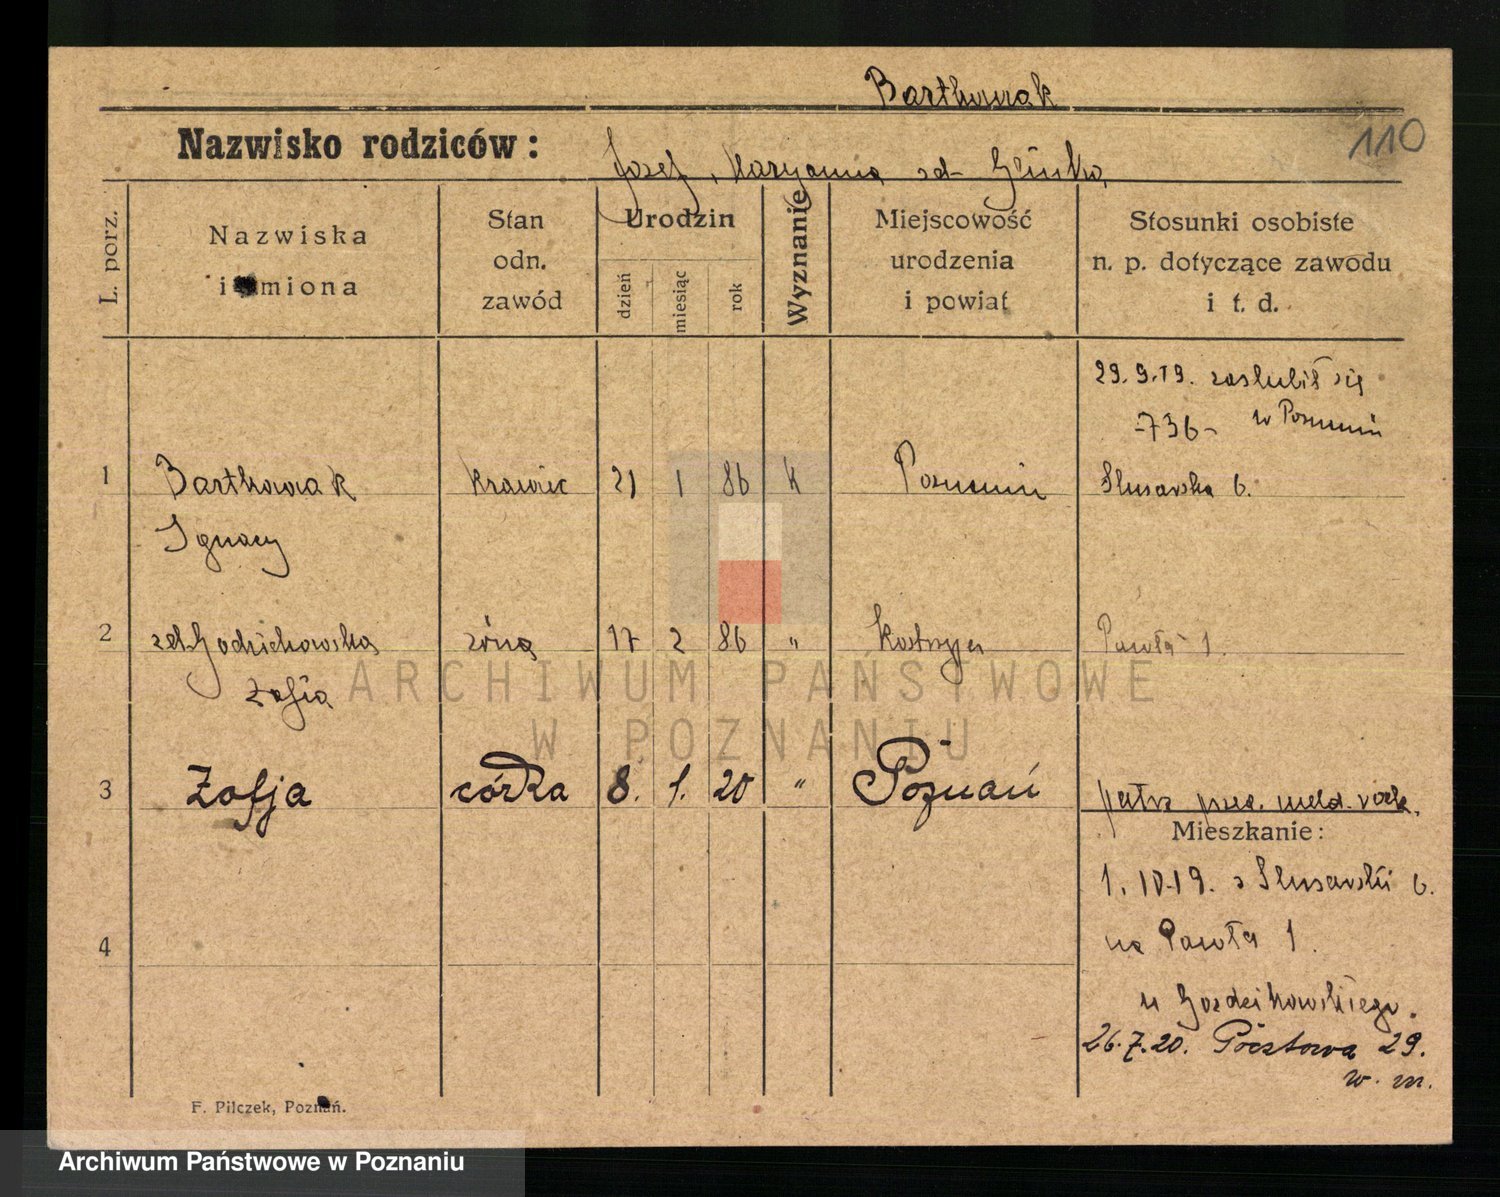 Bartkowiak
110
Nazwisko rodziców:
Józef, Maryanna zd- Glinka
L. porz.
Nazwiska
i imiona
Stan
odn.
zawód
Urodzin
dzień
miesiąc
rok
Wyznanie
Miejscowość
urodzenia
i powiat
Stosunki osobiste
n. p. dotyczące zawodu
i t. d.
29.9.19. zaślubił się
-736- w Poznaniu
1 Bartkowiak krawiec 21 1 86 k Poznaniu Slusarska 6.
Ignacy
2 zd. żona 17 2 86 " Kostrzyn Pawła 1.
Zofia
3 Zofja córka 8. 1. 20 " Poznań patrz meld.
Mieszkanie:
1.10.19. z Slusarski 6.
na Pawła 1.
4
u Gozdzikowskiego.
26.7.20. Pocztowa 29.
w. m.
F. Pilczek, Poznań.
ARCHIWUM PAŃSTWOWE
W POZNANIU
Archiwum Państwowe w Poznaniu